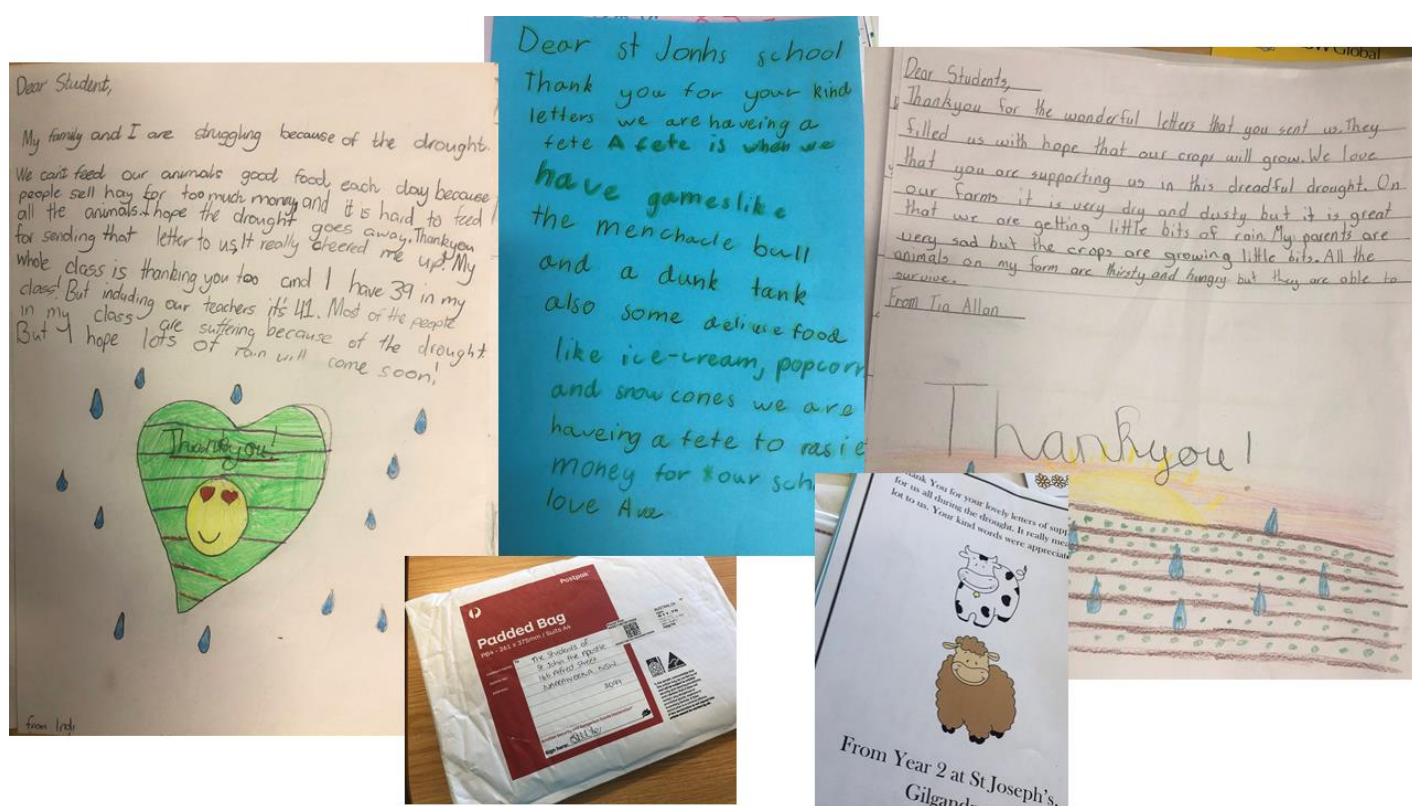 Dear Student,
My family and I are struggling because of the drought.
We can't feed our animals good food each day because
people sell hay for too much money and it is hard to feed
all the animals. I hope the drought goes away. Thankyou
for sending that letter to us, It really cheered me up! My
whole class is thanking you too and I have 39 in my
class! But including our teachers it's 41. Most of the people
in my class are suffering because of the drought.
But I hope lots of rain will come soon!
Thankyou!
from Indi
Dear st Jonhs school
Thank you for your kind
letters we are haveing a
fete A fete is when we
have gameslike
the menchacle bull
and a dunk tank
also some delicse food
like ice-cream, popcorn
and snow cones we are
haveing a fete to rasie
money for our sch
love Ave
Global
Dear Students,
Thankyou for the wonderful letters that you sent us. They
filled us with hope that our crops will grow. We love
that you are supporting us in this dreadful drought. On
our farms it is very dry and dusty but it is great
that we are getting little bits of rain. My parents are
very sad but the crops are growing little bits. All the
animals on my farm are thirsty and hungry but they are able to
survive.
From Tia Allan
Thankyou!
Postpak
Padded Bag
PB4 - 261 x 375mm / Suits A4
The Students of
St John the Apostle
166 Alfred Street
NARRAWEENA NSW
2099
Sign here:
Thank You for your lovely letters of supp
for us all during the drought. It really mea
lot to us. Your kind words were appreciat
From Year 2 at St Joseph's,
Gilgand